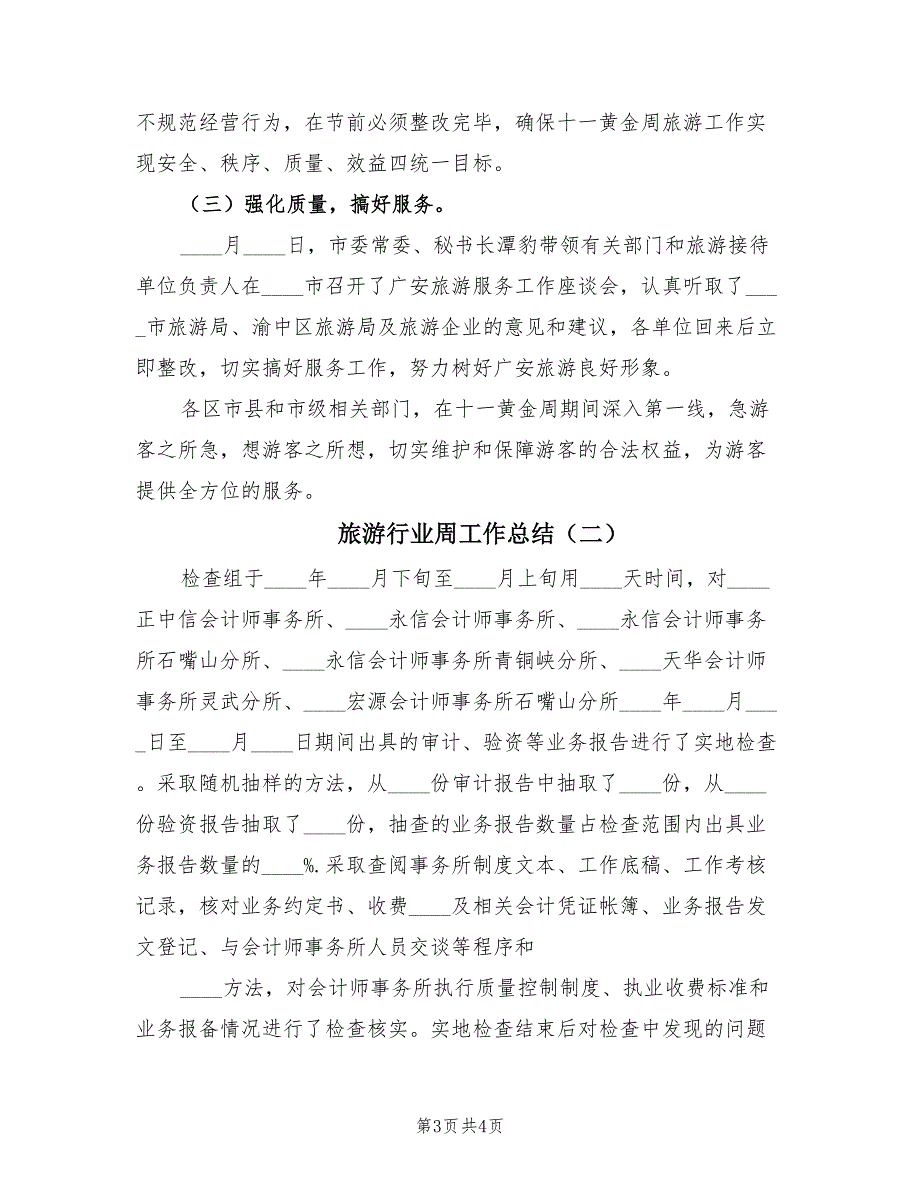 不规范经营行为，在节前必须整改完毕，确保十一黄金周旅游工作实
现安全、秩序、质量、效益四统一目标。
（三）强化质量，搞好服务。
____月____日，市委常委、秘书长潭豹带领有关部门和旅游接待
单位负责人在____市召开了广安旅游服务工作座谈会，认真听取了___
_市旅游局、渝中区旅游局及旅游企业的意见和建议，各单位回来后立
即整改，切实搞好服务工作，努力树好广安旅游良好形象。
各区市县和市级相关部门，在十一黄金周期间深入第一线，急游
客之所急，想游客之所想，切实维护和保障游客的合法权益，为游客
提供全方位的服务。
旅游行业周工作总结（二）
检查组于____年____月下旬至____月上旬用____天时间，对____
正中信会计师事务所、____永信会计师事务所、____永信会计师事务
所石嘴山分所、____永信会计师事务所青铜峡分所、____天华会计师
事务所灵武分所、____宏源会计师事务所石嘴山分所____年____月___
_日至____月____日期间出具的审计、验资等业务报告进行了实地检查
。采取随机抽样的方法，从____份审计报告中抽取了____份，从____
份验资报告抽取了____份，抽查的业务报告数量占检查范围内出具业
务报告数量的____%.采取查阅事务所制度文本、工作底稿、工作考核
记录，核对业务约定书、收费____及相关会计凭证帐簿、业务报告发
文登记、与会计师事务所人员交谈等程序和
____方法，对会计师事务所执行质量控制制度、执业收费标准和
业务报备情况进行了检查核实。实地检查结束后对检查中发现的问题
第3页共4页